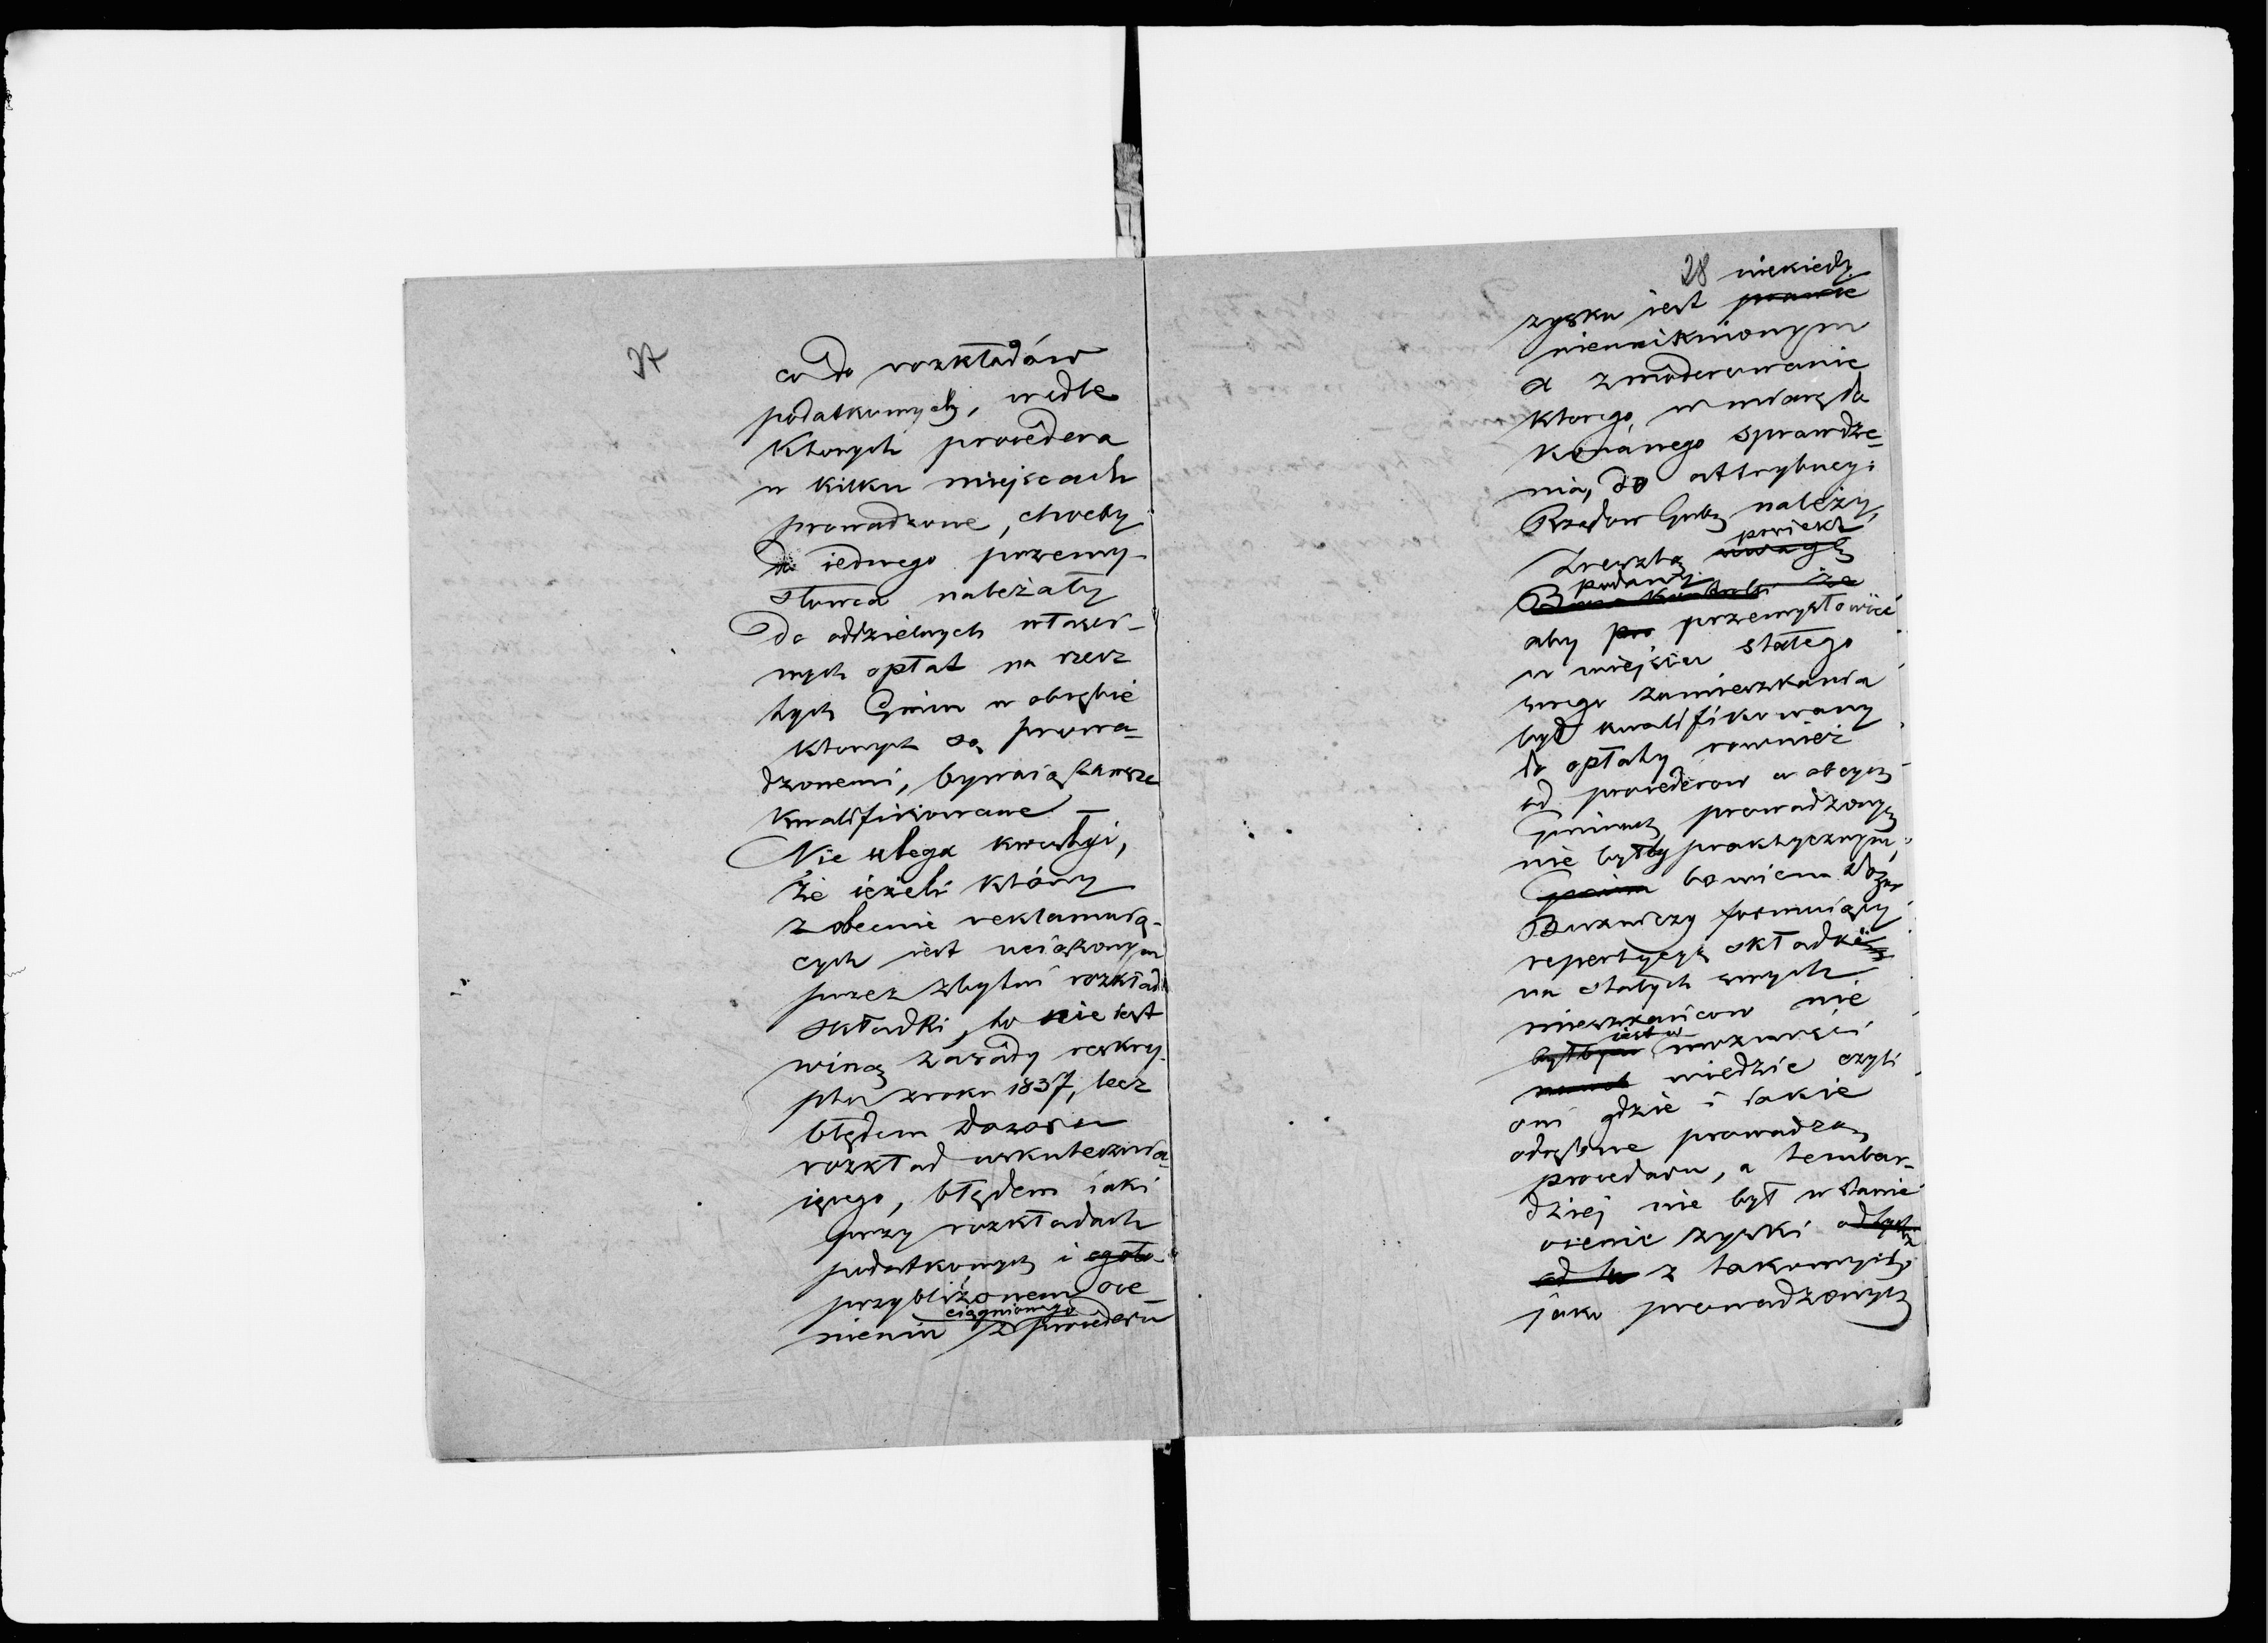 co do rozkładów
podatkowych, wedle
Których procedera
w kilku miejscach
prowadzone, choćby
do iednego przemy-
słowca należały
Do oddzielnych właści-
wych opłat na rzecz
tych Gmin w obrębie
ktorych są prowa-
dzonemi, bywaią zawsze
kwalifikowane —
Nie ulega kwestyi,
że ieżeli który
z obecnie reklamuią-
cych iest uciążonym
przez zbytni rozkład
składki, to nie iest
winą zasady reskry-
ptu z roku 1837, lecz
błędem Dozoru
rozkład uskutecznia-
iącego, błędem iaki
przy rozkładach
podatkowych i
przybliżonem oce-
ciągnionego
nieniu z procederu
28 niekiedy
zysku iest prawie
nieuniknionym
a zmoderowanie
ktorego, w miarę do
konanego sprawdze-
nia, do attrybucyi
Rządow Gub należy,
Zresztą
podany
aby pro przemysłowiec
w miejscu stałego
swego zamieszkania
był kwalifikowany
do opłaty rownież
od procederow w obcych
Gminach prowadzonych
nie byłby praktycznym,
bowiem Dozor
Bożniczy formuiący
repertycyę składki
na stałych swych
mieszkańcow nie
iest w
byłby możności
wiedzie czyli
oni gdzie i iakie
odrębne prowadzą
procedera, a tembar-
dziej nie był w stanie
ocenić zyski
z takowych
jako prowadzonych